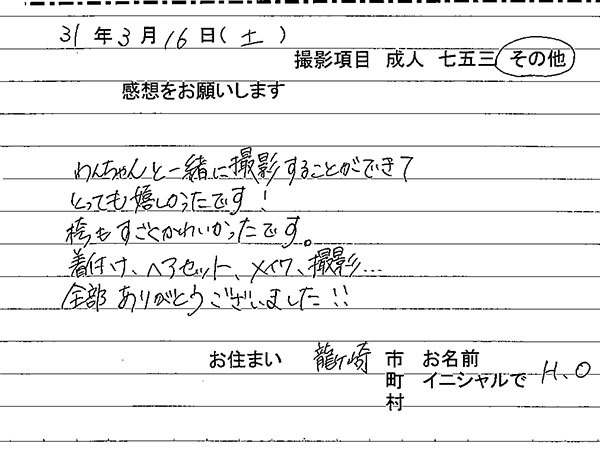 31年3月16日(土)
撮影項目 成人 七五三 その他
感想をお願いします
わんちゃんと一緒に撮影することができて
とっても嬉しかったです!
袴もすごくかわいかったです。
着付け、ヘアセット、メイク、撮影…
全部ありがとうございました!!
お住まい 龍ヶ崎 市 お名前
町 イニシャルで H.O
村